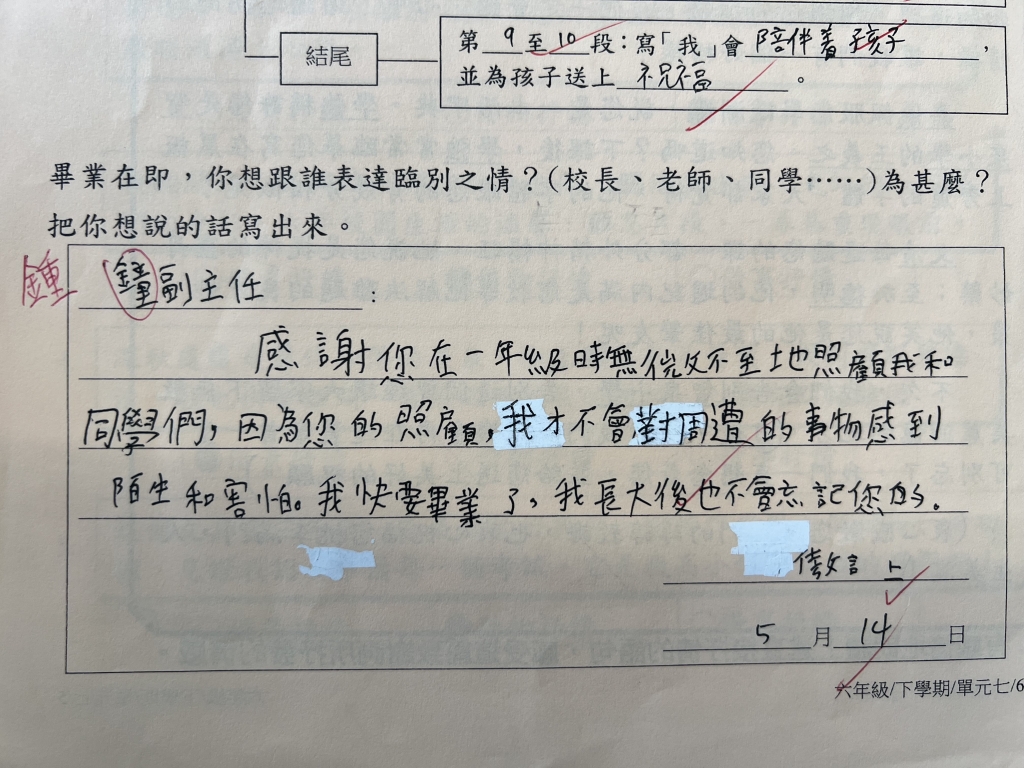 第 9 至 10 段：寫「我」會 陪伴着孩子，
結尾
並為孩子送上 祝福。
畢業在即，你想跟誰表達臨別之情？(校長、老師、同學……)為甚麼？
把你想說的話寫出來。
鍾
鐘副主任：
感謝您在一年級時無微不至地照顧我和
同學們，因為您的照顧，我才不會對周遭的事物感到
陌生和害怕。我快要畢業了，我長大後也不會忘記您的。
上
5 月 14 日
六年級/下學期/單元七/6